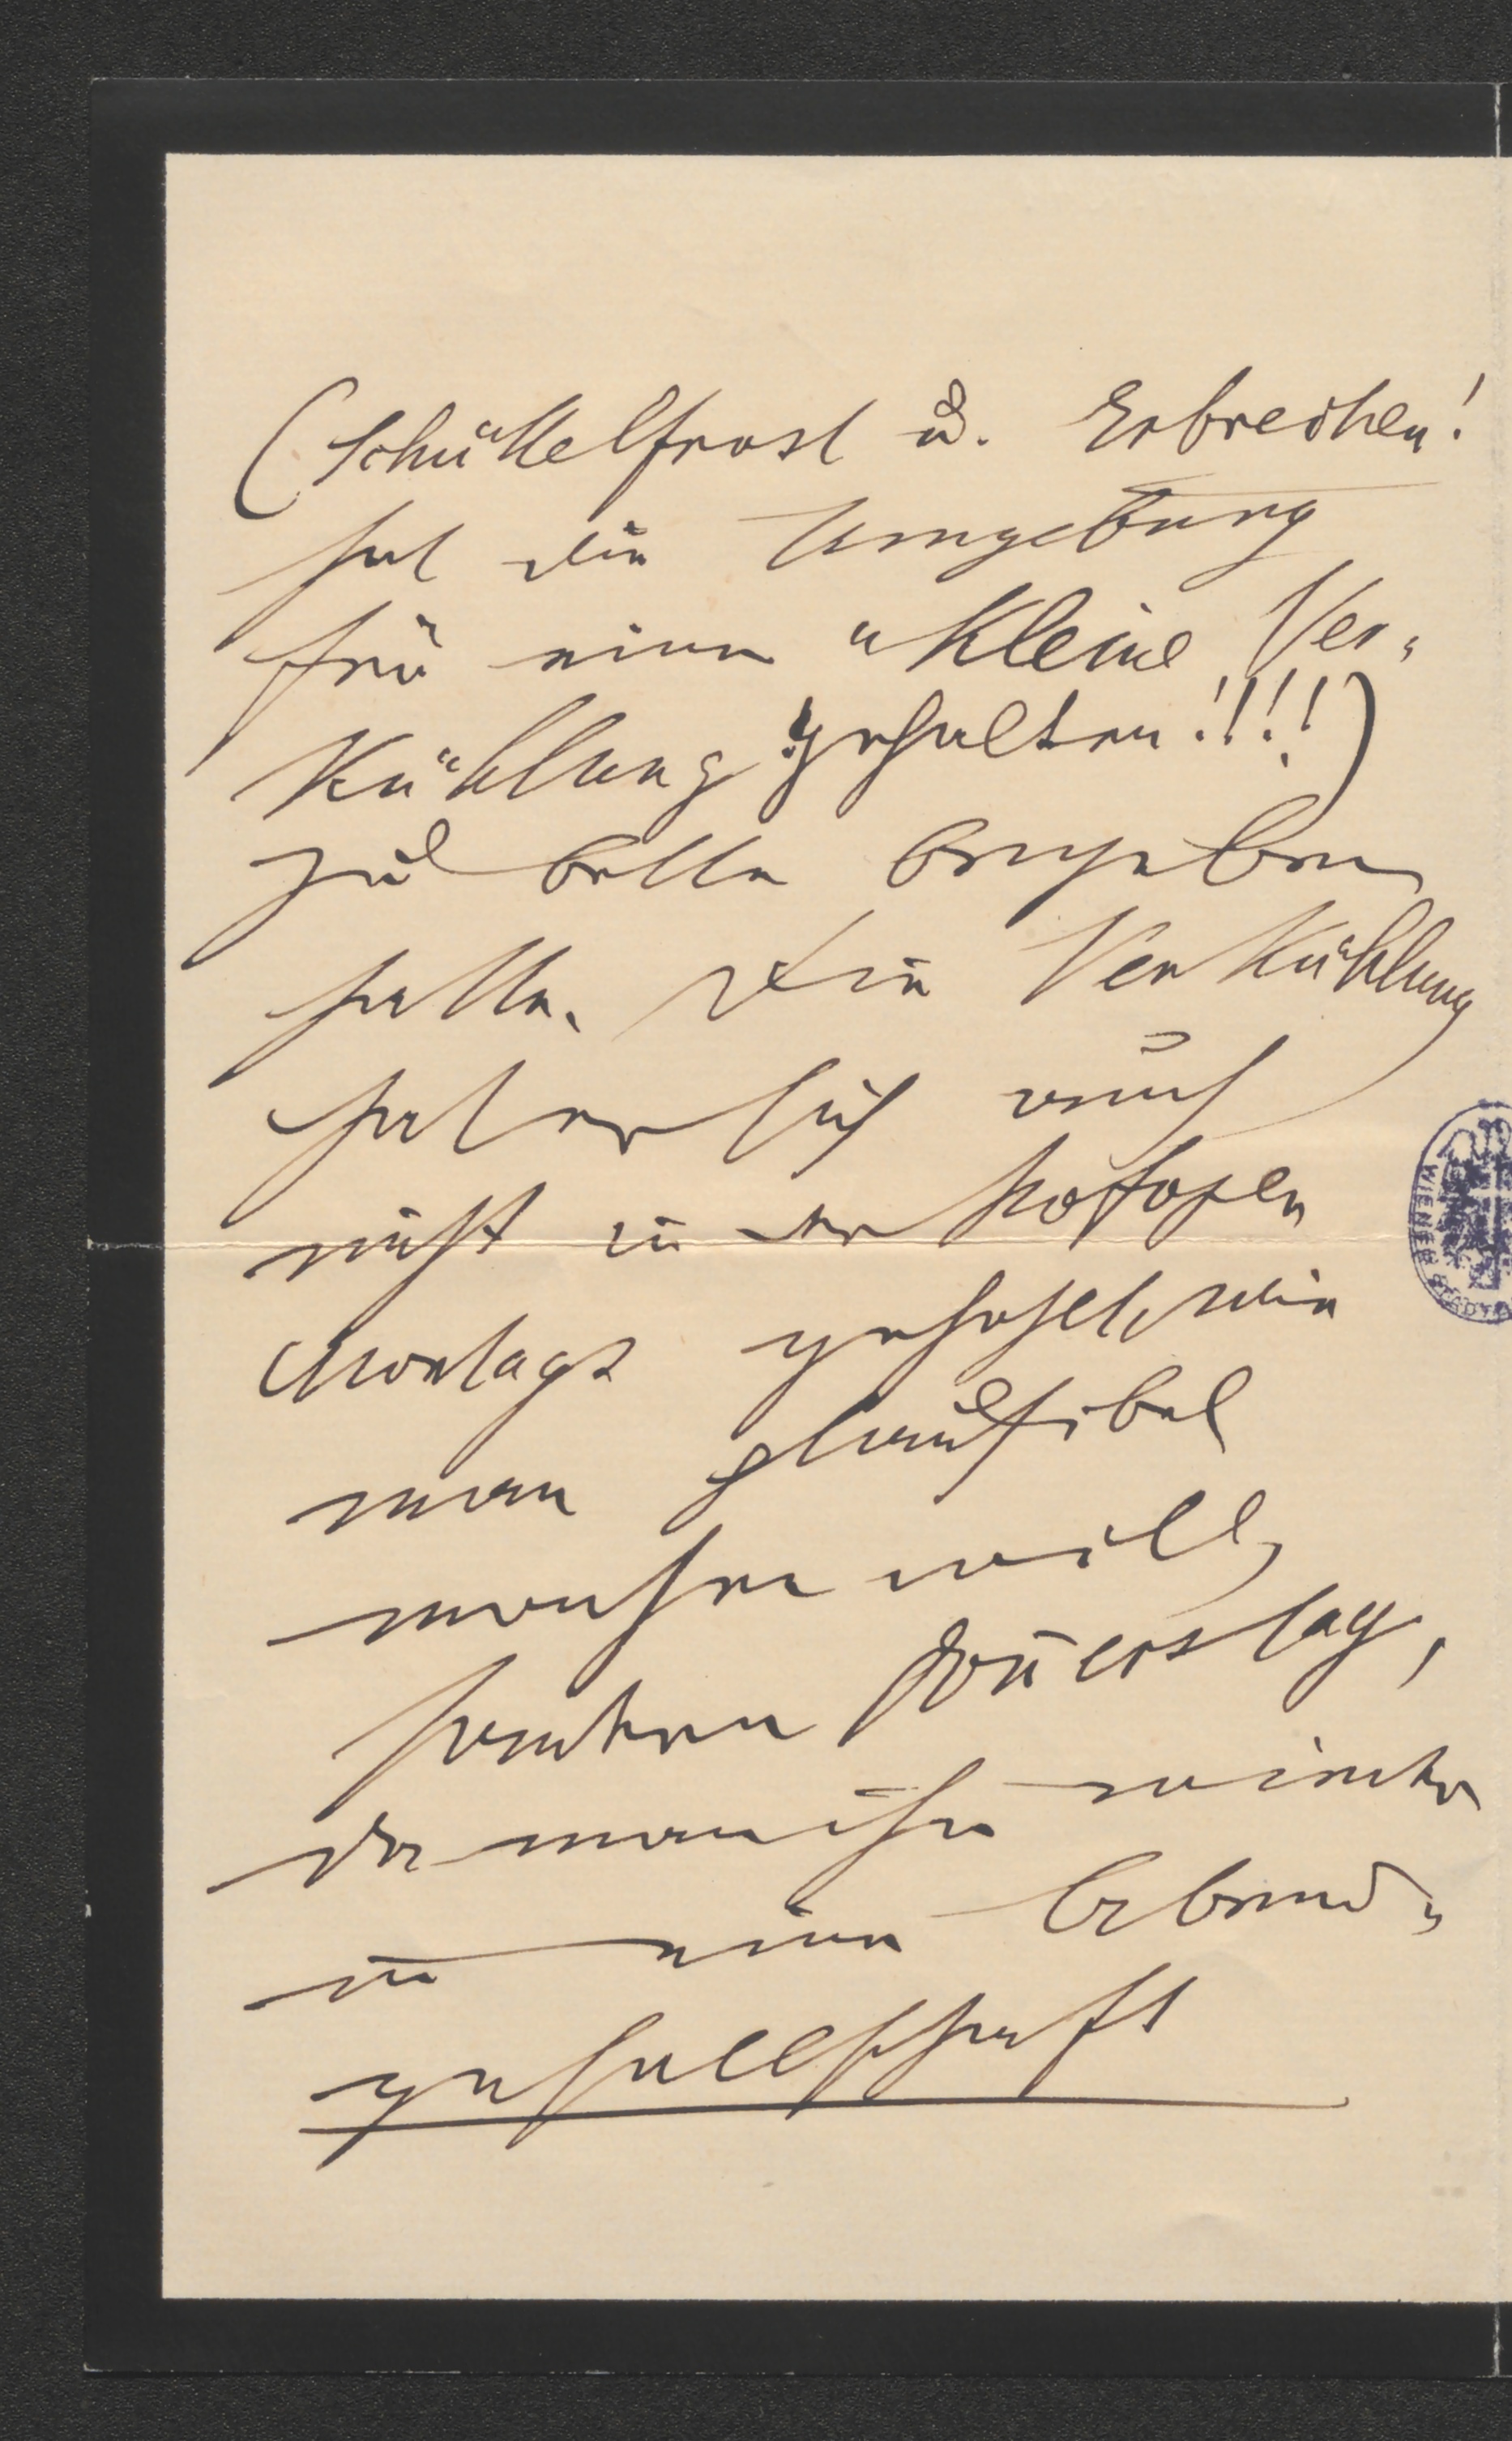 (Schüttelfrost u. Erbrechen!
hat die Umgebung
für eine "kleine Ver-
kühlung" gehalten!!!!)
zu Bette begeben
hatte. Die Verkühlung
hat er sich auch
nicht in der
Montags geholt, wie
man plausibel
machen will,
sondern Donnerstag,
da man ihn wieder
in eine Abend-
gesellschaft
WIENER